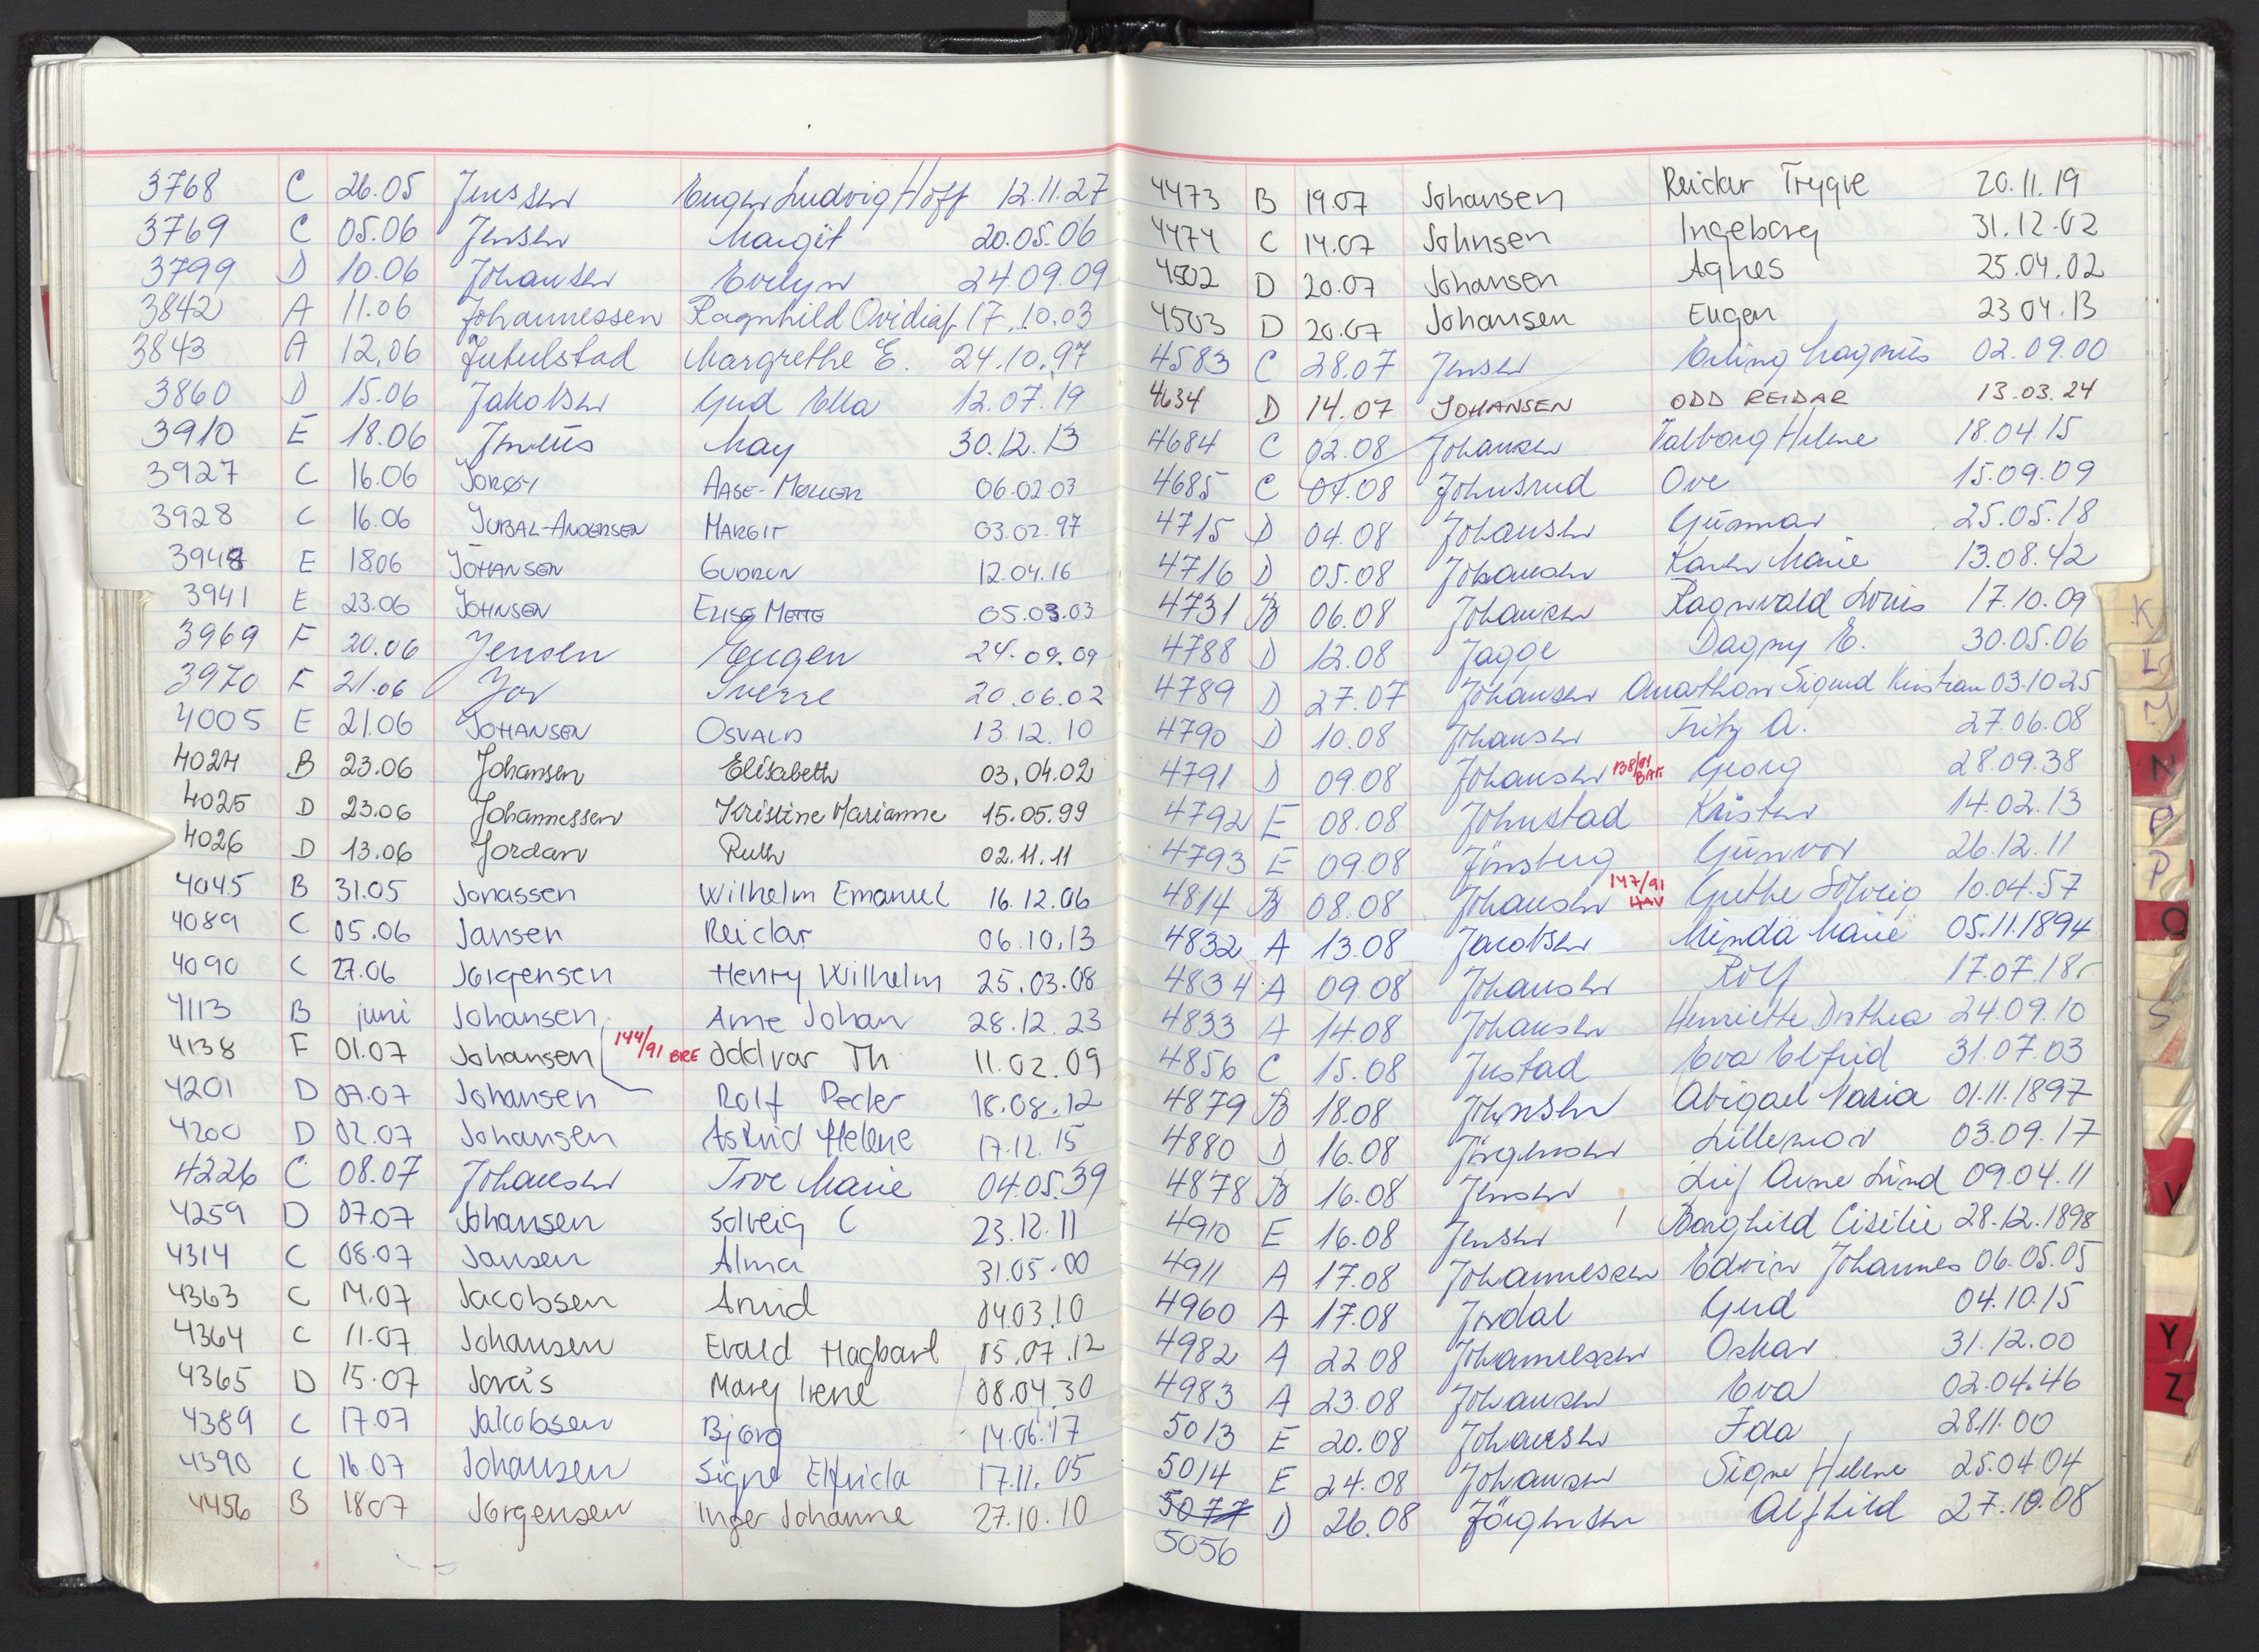 3768 C 26.05 Jenssen Eugen Ludvig Hoff 12.11.27
3769 C 05.06 Jensen Margit 20.05.06
3799 D 10.06 Johansen Evelyn 24.09.09
3842 A 11.06 Johannessen Ragnhild 17.10.03
3843 A 12.06 Jutulstad Margrethe E. 24.10.97
3860 D 15.06 Jakobsen Gud Ella 12.07.19
3910 E 18.06 May 30.12.13
3927 C 16.06 Jorøy Aase-Møller 06.02.03
3928 C 16.06 Jubal-Andersen Margit 03.02.97
394 E 18.06 Johansen Gudrun 12.04.16
3941 E 23.06 Johnsen Elise Mette 05.03.03
3969 F 20.06 Jensen Eugen 24.09.09
3970 F 21.06 Jor Sverre 20.06.02
4005 E 21.06 Johansen Osvald 13.12.10
4024 B 23.06 Johansen Elisabeth 03.04.02
4025 D 23.06 Johannessen Kristine Marianne 15.05.99
4026 D 13.06 Jordan Ruth 02.11.11
4045 B 31.05 Jonassen Wilhelm Emanuel 16.12.06
4089 C 05.06 Jansen Reidar 06.10.13
4090 C 27.06 Jørgensen Henry Wilhelm 25.03.08
4113 B juni Johansen Arne Johan 28.12.23
4138 F 01.07 Johansen 144/91 BRE Oddvar Th 11.02.09
4201 D 07.07 Johansen Rolf Peder 18.08.12
4200 D 02.07 Johansen Astrid Helene 17.12.15
4226 C 08.07 Johansen Tove Marie 04.05.39
4259 D 07.07 Johansen Solveig C 23.12.11
4314 C 08.07 Jansen Alma 31.05.00
4363 C 14.07 Jacobsen Arvid 04.03.10
4364 C 11.07 Johansen Evald Hagbart 05.07.12
4365 D 15.07 Mary Irene 08.04.30
4389 C 17.07 Jakobsen Bjørg 14.06.17
4390 C 16.07 Johansen Signe Elfrida 17.11.05
4456 B 18.07 Jørgensen Inger Johanne 27.10.10
4473 B 19.07 Johansen Reidar Trygve 20.11.19
4474 C 14.07 Johnsen Ingeborg 31.12.02
4502 D 20.07 Johansen Agnes 25.04.02
4503 D 20.07 Johansen Eugen 23.04.13
4583 C 28.07 Jensen Erling Magnus 02.09.00
4634 D 14.07 JOHANSEN ODD REIDAR 13.03.24
4684 C 02.08 Johansen Valborg Helene 18.04.15
4685 C 04.08 Johnsrud Ove 15.09.09
4715 D 04.08 Johansen Gunnar 25.05.18
4716 D 05.08 Johansen Karen Marie 13.08.42
4731 B 06.08 Johansen Ragnvald Louis 17.10.09
4788 D 12.08 Jagge Dagny E. 30.05.06
4789 D 27.07 Johansen Sigurd Kristian 03.10.25
4790 D 10.08 Johansen Fritz A. 27.06.08
4791 D 09.08 Johansen 138/91 Georg 28.09.38
4792 E 08.08 Johnstad Kristen 14.02.13
4793 E 09.08 Jönsberg Gunvor 26.12.11
4814 B 08.08 Johansen 147/91 HAV Grethe Solveig 10.04.57
4832 A 13.08 Jacobsen Minda Marie 05.11.1894
4834 A 09.08 Johansen Rolf 17.07.18
4833 A 14.08 Johansen Henriette Dorthea 24.09.10
4856 C 15.08 Justad Eva Elfrid 31.07.03
4879 B 18.08 Johnsen Abigael Maria 01.11.1897
4880 D 16.08 Jörgensen Lillemor 03.09.17
4878 B 16.08 Jensen Leif Arne Lund 09.04.11
4910 E 16.08 Jensen Borghild Cisilie 28.12.1898
4911 A 17.08 Johannessen Edvin Johannes 06.05.05
4960 A 17.08 Jordal Gerd 04.10.15
4982 A 22.08 Johannessen Oskar 31.12.00
4983 A 23.08 Johansen Eva 02.04.46
5013 E 20.08 Johansen Ida 28.11.00
5014 E 24.08 Johansen Signe Helene 25.04.04
5077 D 26.08 Jörgensen Alfhild 27.10.08
5056
K
L
M
N
O
P
Q
S
V
Y
Z